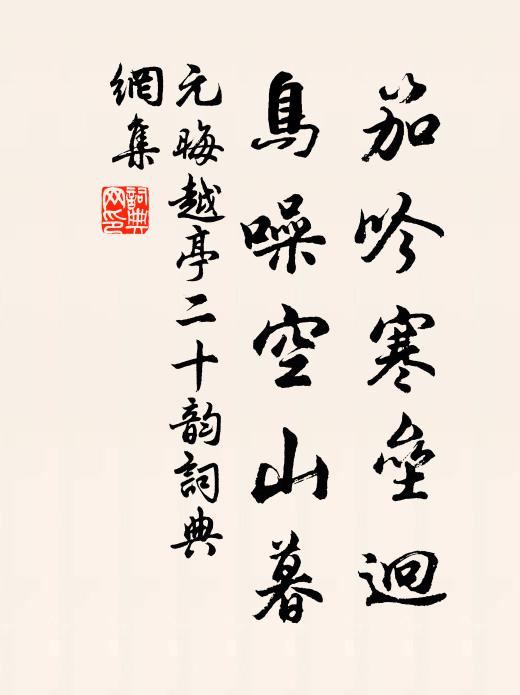 笳吟寒壘迥
鳥噪空山暮
元晦越亭二十韵詞典
網集
詞典網印